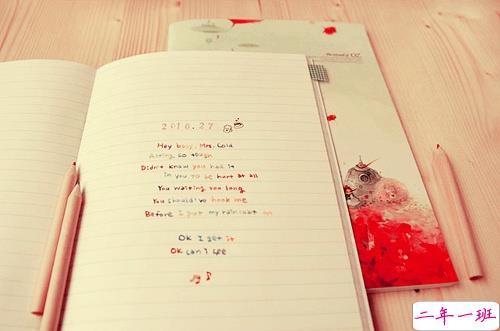 2010.27
Hey boey, Mrs. Cold
Acting so tough
Didn't know you had it
In you to be hurt at all
You waiting too long
You should've hook me
Before I put my raincoat on
OK I get it
OK can I see
二年一班